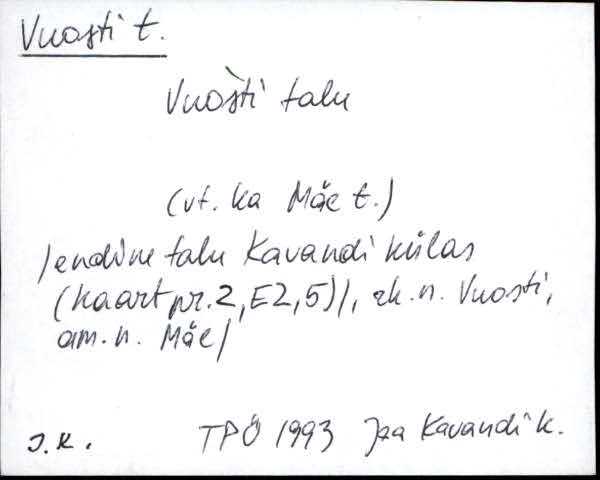 Vuosti t.
Vuos̀ti talu
(vt. ka Mäe t.)
/endine talu Kavandi külas
(kaart nr. 2, E2,5)/, rk. n. Vuosti,
am. n. Mäe/
J. K. TPÖ 1993 Jaa Kavandi k.